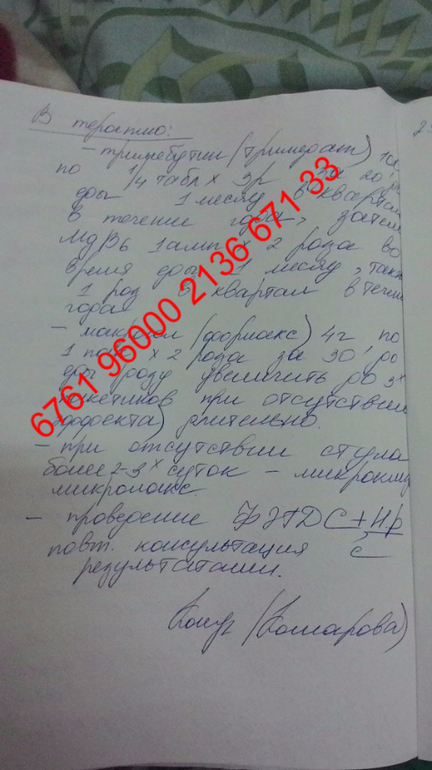 В терапию:
- тримебутин (тримедат)
по 1/4 табл х 3р за 20'
еды 1 месяц в квартал
в течение года, затем
МдВ6 1 амп х 2 раза во
время еды 1 месяц, так
1 раз в квартал в течен
года
- макрогол (форлакс) 4г по
1 пак х 2 раза за 30' до
еды дозу увеличить до 3х
пакетиков при отсутствии
эффекта) длительно.
- при отсутствии стула
более 2-3х суток - микроклиз
микролакс
- проведение ФЭГДС + Hp
повт. консультация с
результатами.
(Комарова)
6761 96000 2136 671 33